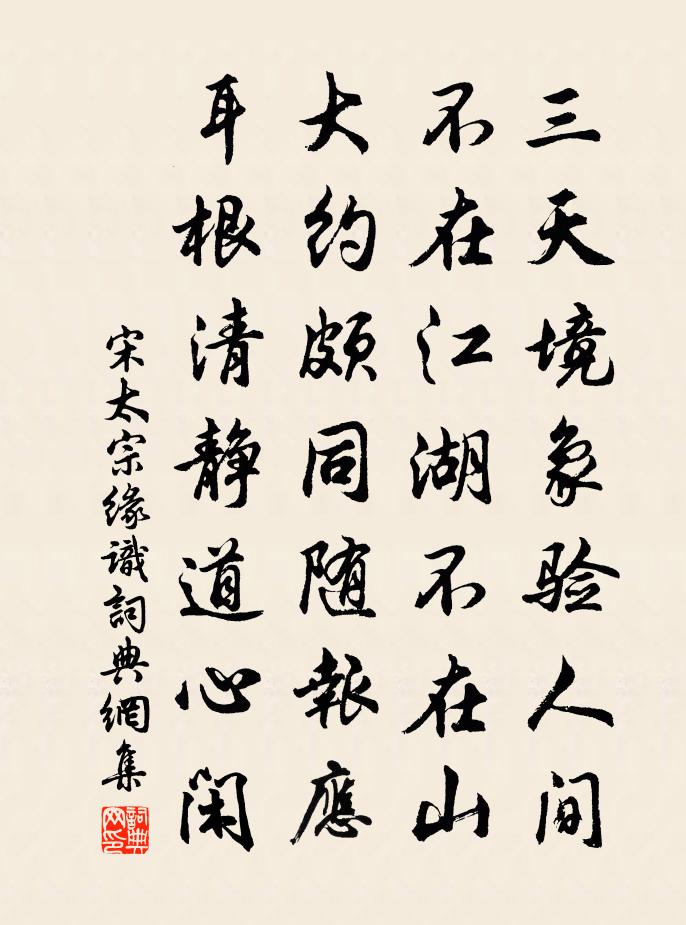 三天境象验人间
不在江湖不在山
大约颇同随報應
耳根清静道心闲
宋太宗緣識詞典網集
詞典网印